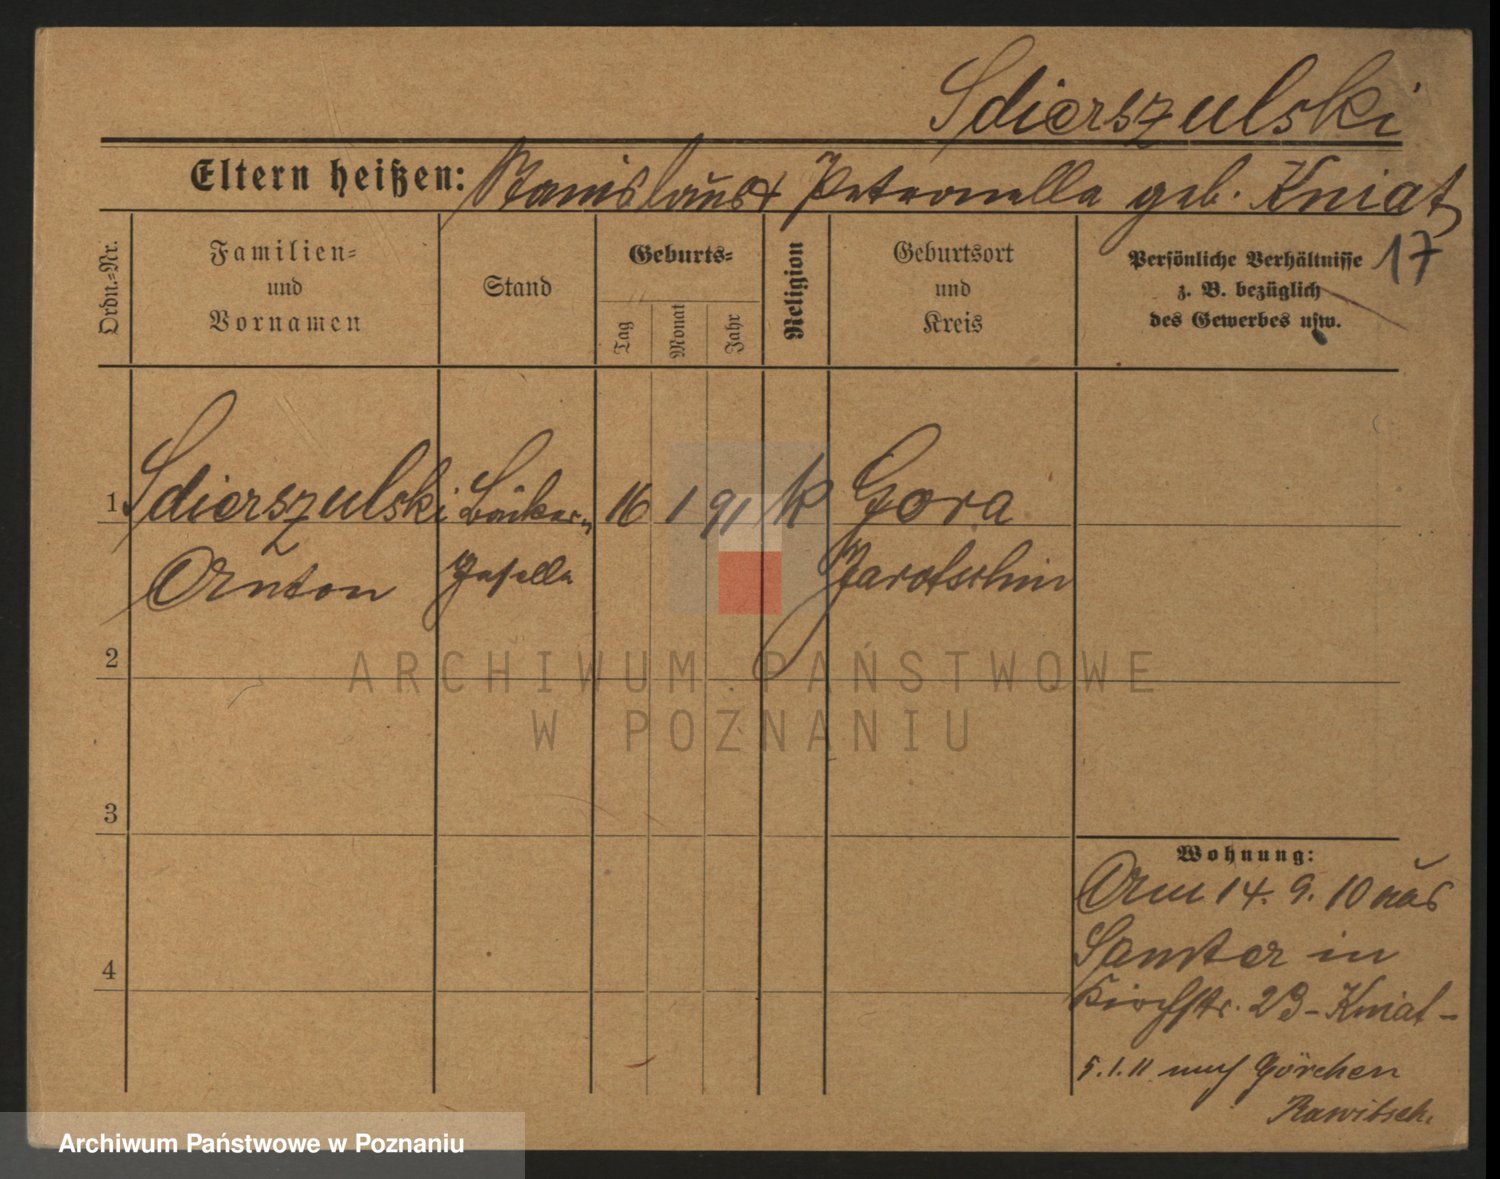 Sdierszulski
Eltern heißen: Stanislaus + Petronella geb. Kniat
17
Ordn.-Nr.
Familien-
und
Vornamen
Stand
Geburts-
Tag
Monat
Jahr
Religion
Geburtsort
und
Kreis
Persönliche Verhältnisse
z. B. bezüglich
des Gewerbes usw.
1 Sdierszulski Bäcker- 16 1 91 k Gora
Anton Geselle Jarotschin
2
3
4
Wohnung:
Am 14. 9. 10 aus
Samter in
Kirchstr. 23 - Kniat -
5.1.11 nach Görchen
Rawitsch.
ARCHIWUM PAŃSTWOWE
W POZNANIU
Archiwum Państwowe w Poznaniu